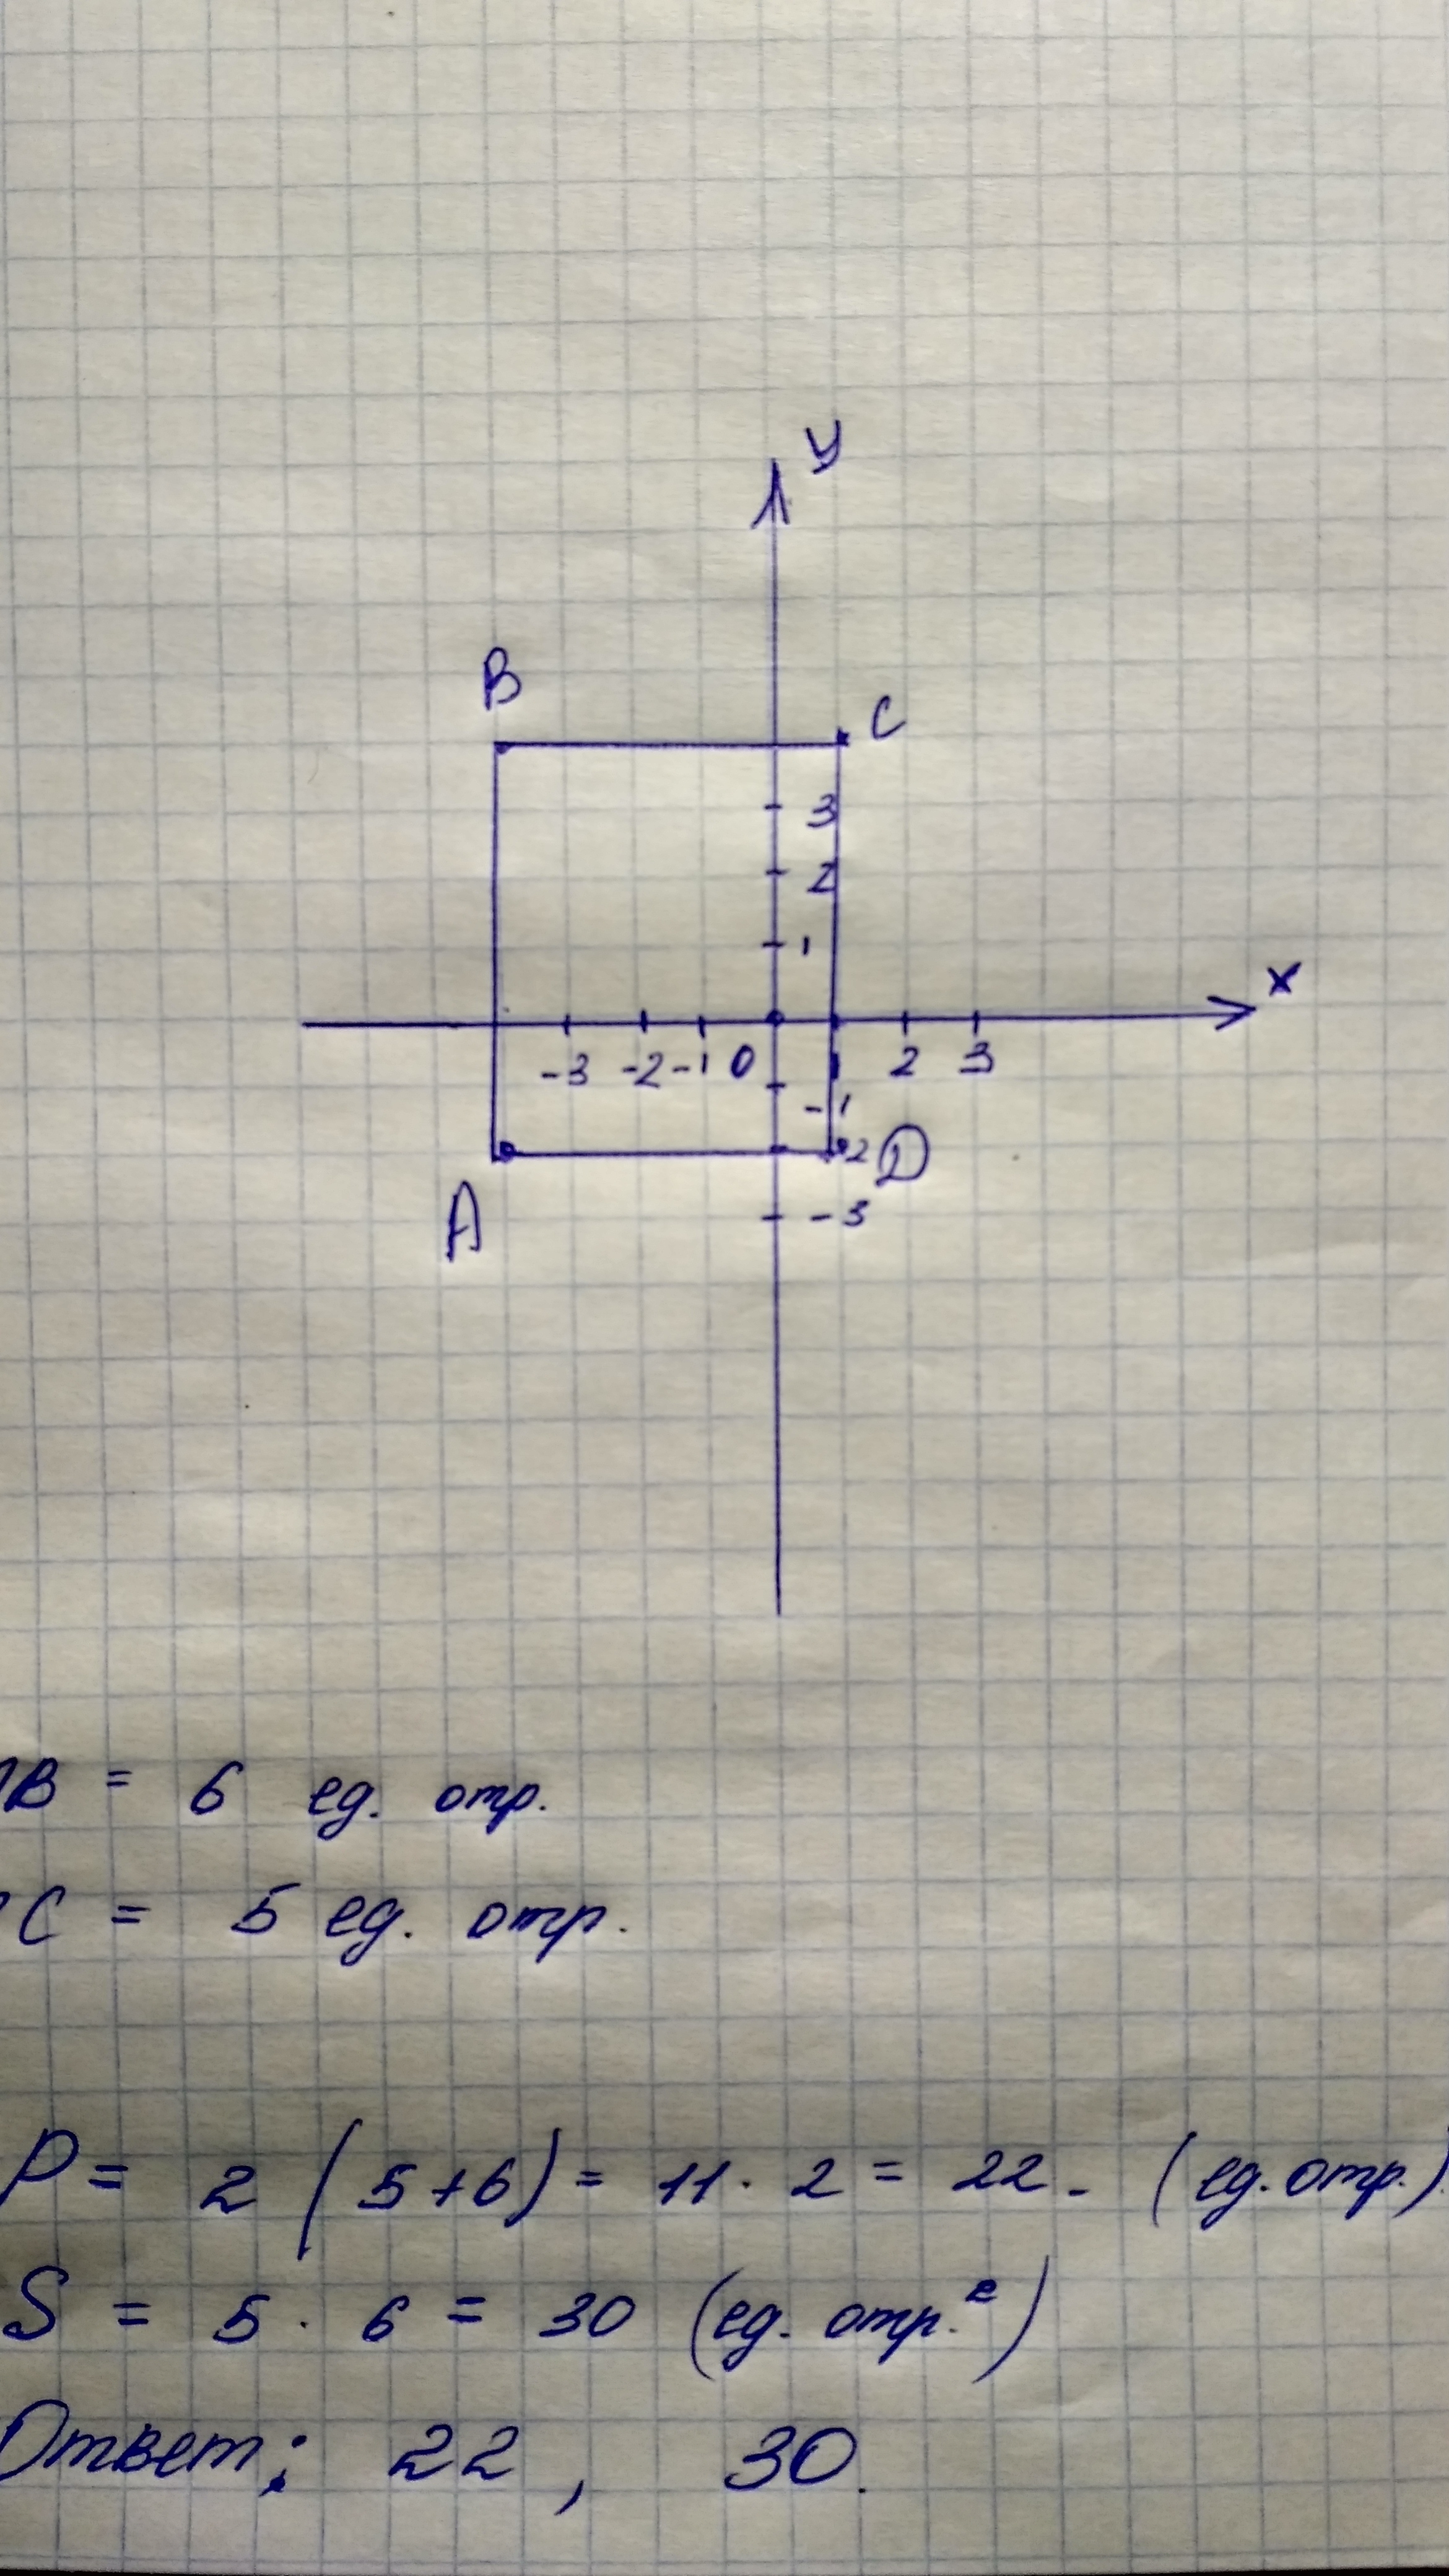 y
B
C
3
2
1
x
-3 -2 -1 0 1 2 3
-1
2 D
-3
A
AB = 6 ед. отр.
BC = 5 ед. отр.
P = 2 (5+6) = 11 · 2 = 22. (ед. отр.)
S = 5 · 6 = 30 (ед. отр.²)
Ответ: 22, 30.